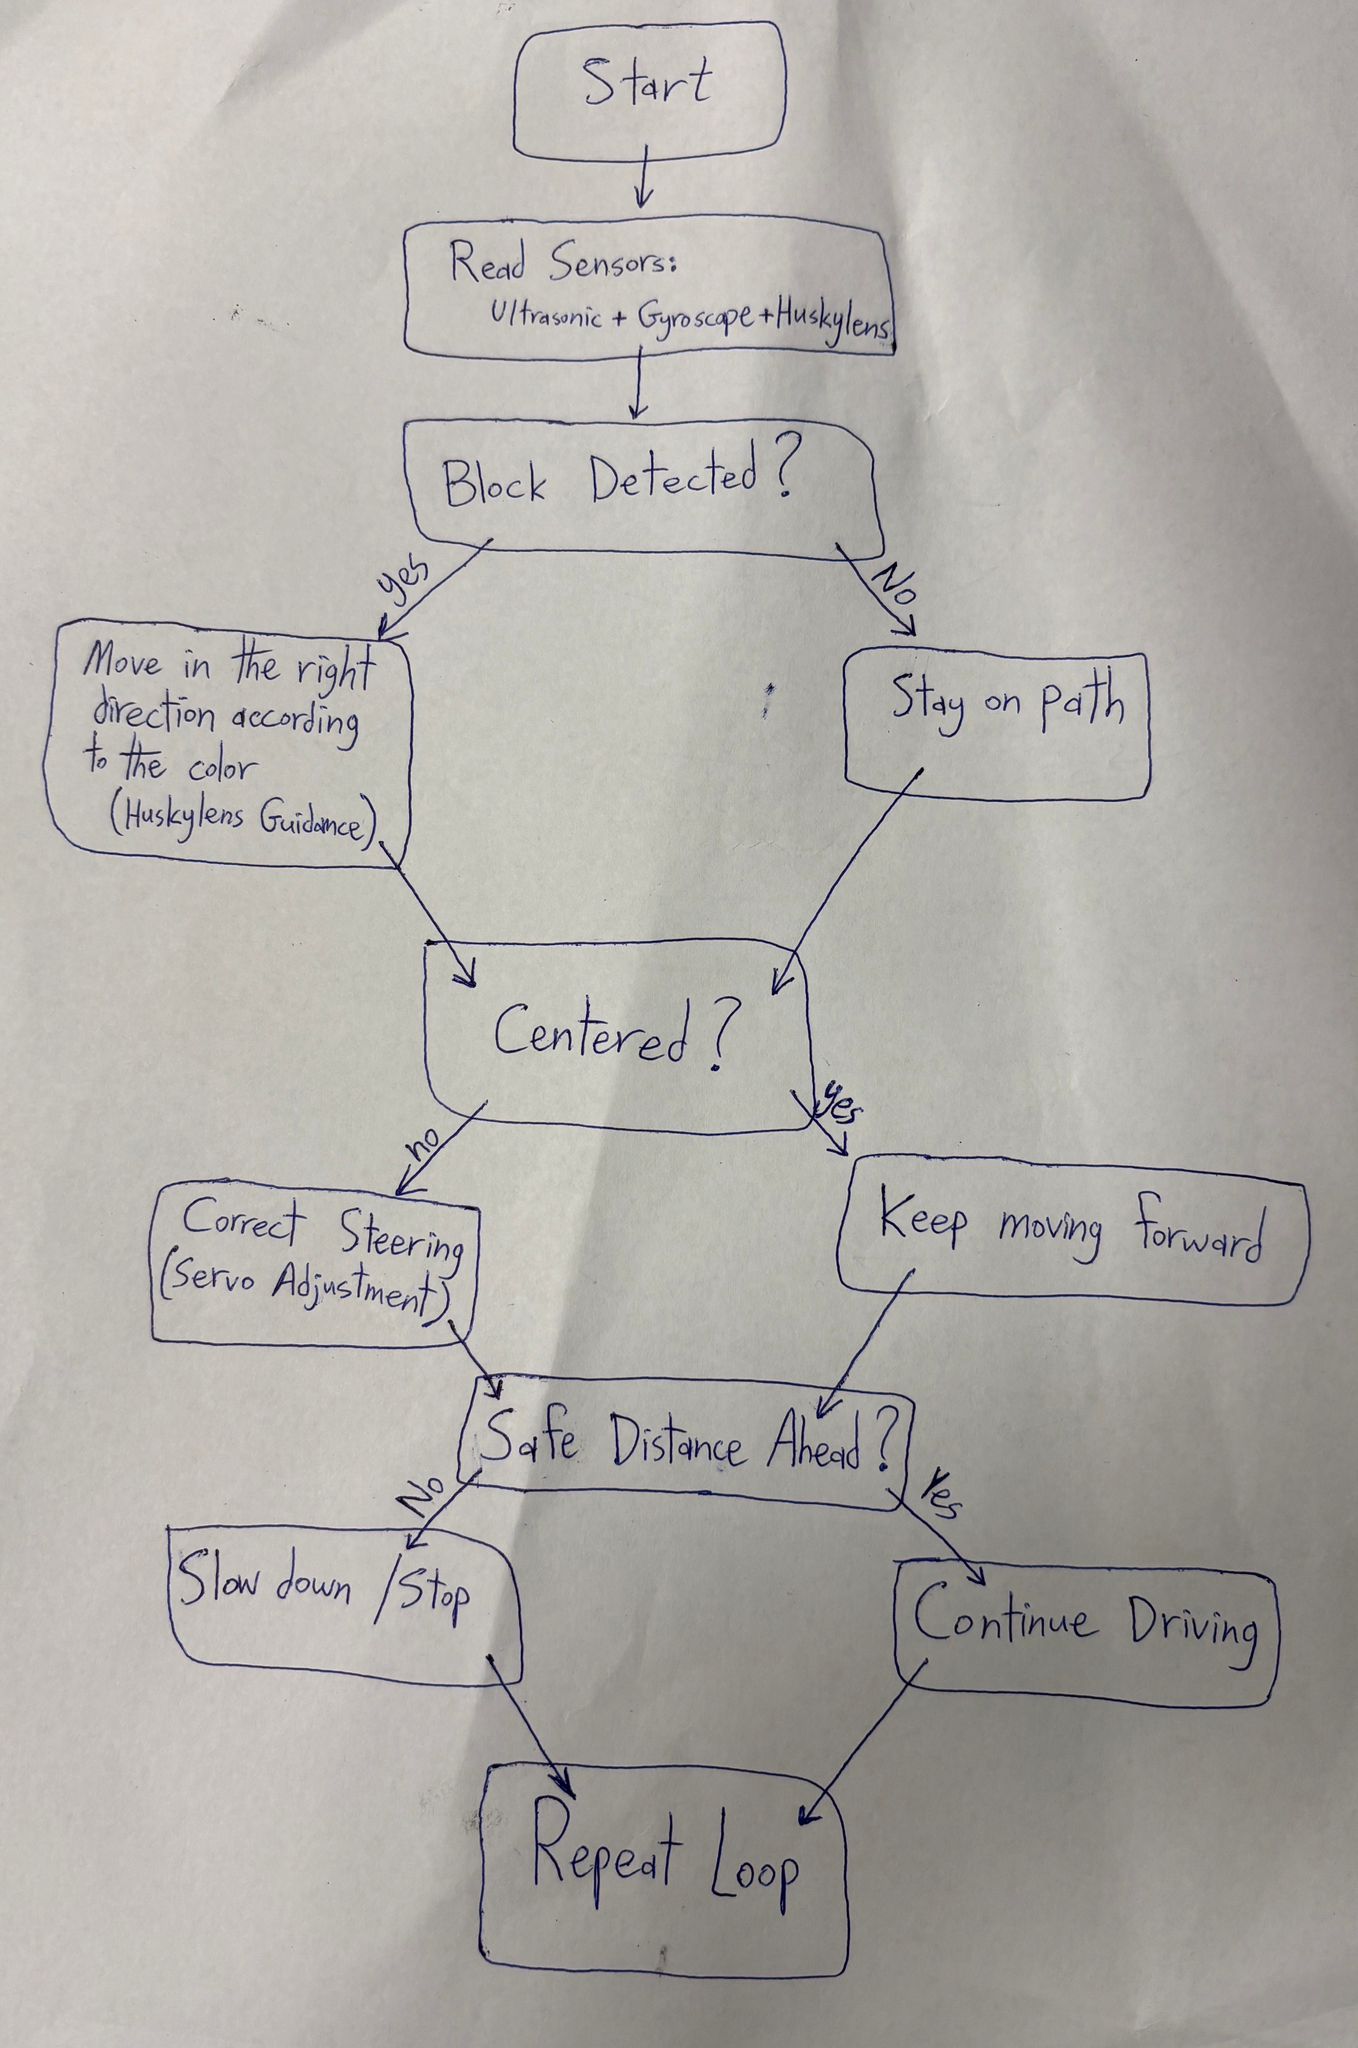 Start
Read Sensors:
Ultrasonic + Gyroscope + Huskylens
Block Detected?
yes
No
Move in the right
direction according
to the color
(Huskylens Guidance)
Stay on path
Centered?
no
yes
Correct Steering
(Servo Adjustment)
Keep moving forward
Safe Distance Ahead?
No
Yes
Slow down / Stop
Continue Driving
Repeat Loop